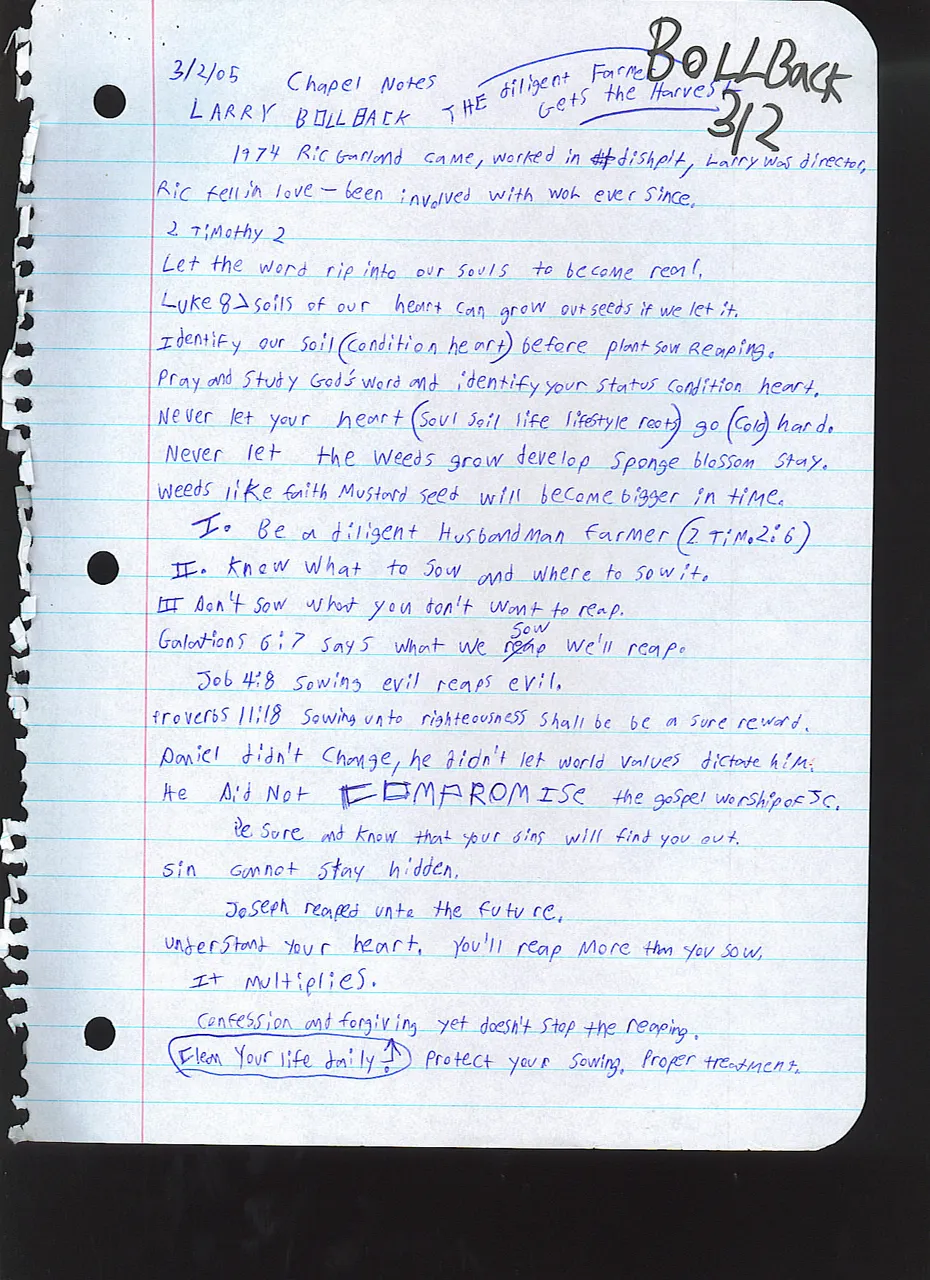 BOLLBack
3/2
3/2/05 Chapel Notes THE diligent Farmer
Gets the Harvest
LARRY BOLLBACK
1974 Ric Garland came, worked in dishpit, Larry was director,
Ric fell in love – been involved with wol ever since.
2 Timothy 2
Let the word rip into our souls to become real.
Luke 8 > soils of our heart can grow out seeds if we let it.
Identify our soil (condition heart) before plant sow Reaping.
Pray and Study God's word and identify your status condition heart.
Never let your heart (soul soil life lifestyle roots) go (cold) hard.
Never let the weeds grow develop sponge blossom stay.
Weeds like faith Mustard seed will become bigger in time.
I. Be a diligent Husbandman farmer (2 Tim. 2:6)
II. Know what to sow and where to sow it.
III Don't sow what you don't want to reap.
Galations 6:7 says what we reap sow we'll reap.
Job 4:8 sowing evil reaps evil.
Proverbs 11:18 sowing unto righteousness shall be be a sure reward.
Daniel didn't change, he didn't let world values dictate him.
He Did Not COMPROMISE the gospel worship of JC.
Be sure and know that your sins will find you out.
Sin cannot stay hidden.
Joseph reaped unto the future.
Understand your heart. You'll reap more than you sow.
It multiplies.
Confession and forgiving yet doesn't stop the reaping.
Clean Your life daily! Protect your sowing. Proper treatment.